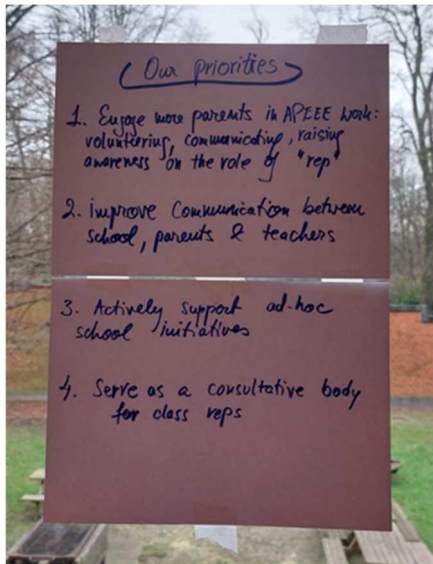 Our priorities
1. Engage more parents in APEEE work:
volunteering, communicating, raising
awareness on the role of "rep"
2. improve Communication between
school, parents & teachers
3. Actively support ad-hoc
school initiatives
4. Serve as a consultative body
for class reps